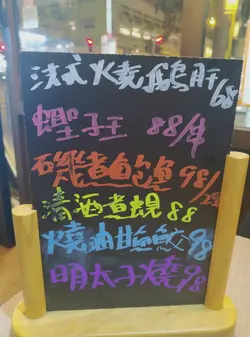 法式燒鵝肝 68
蟶子王 88/半
磯煮鮑魚 98/
清酒煮蜆 88
燒油甘魚鮫 98
明太子燒 98